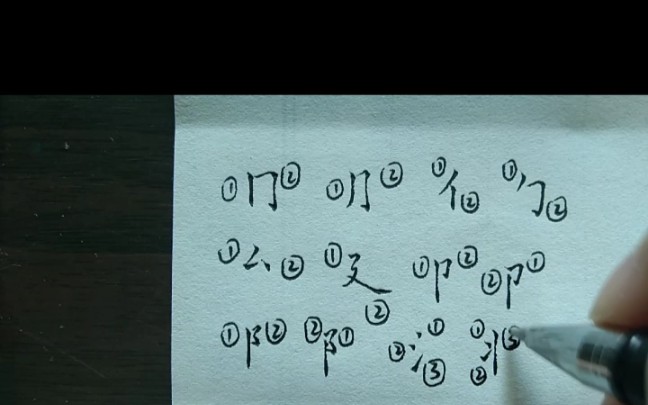 ①冂② ①⺆② ①亻② ①勹②
①厶② ①廴② ①卩② ②卩①
①阝② ②阝① ①②氵③ ①②丬③